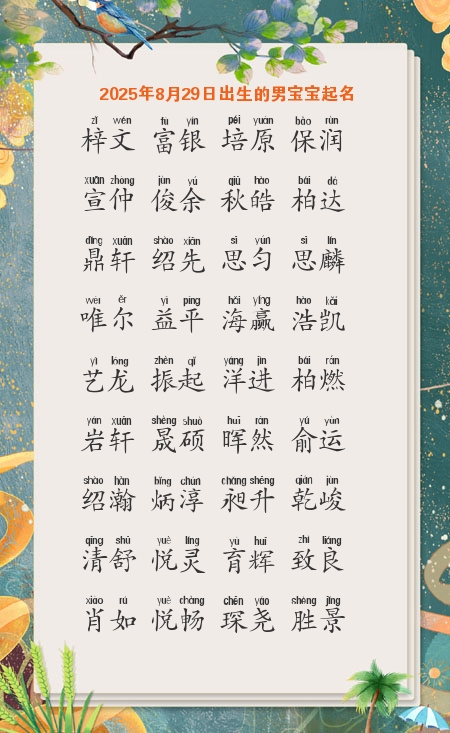 2025年8月29日出生的男宝宝起名
zǐ wén fù yín péi yuán bǎo rùn
梓文 富银 培原 保润
xuān zhòng jùn yú qiū hào bǎi dá
宣仲 俊余 秋皓 柏达
dǐng xuān shào xiān sī yún sī lín
鼎轩 绍先 思匀 思麟
wéi ěr yì píng hǎi yíng hào kǎi
唯尔 益平 海赢 浩凯
yì lóng zhèn qǐ yáng jìn bǎi rán
艺龙 振起 洋进 柏燃
yán xuān shèng shuò huī rán yú yùn
岩轩 晟硕 晖然 俞运
shào hàn bǐng chún chǎng shēng qián jùn
绍瀚 炳淳 昶升 乾峻
qīng shū yuè líng yù huī zhì liáng
清舒 悦灵 育辉 致良
xiào rú yuè chàng chēn yáo shèng jǐng
肖如 悦畅 琛尧 胜景